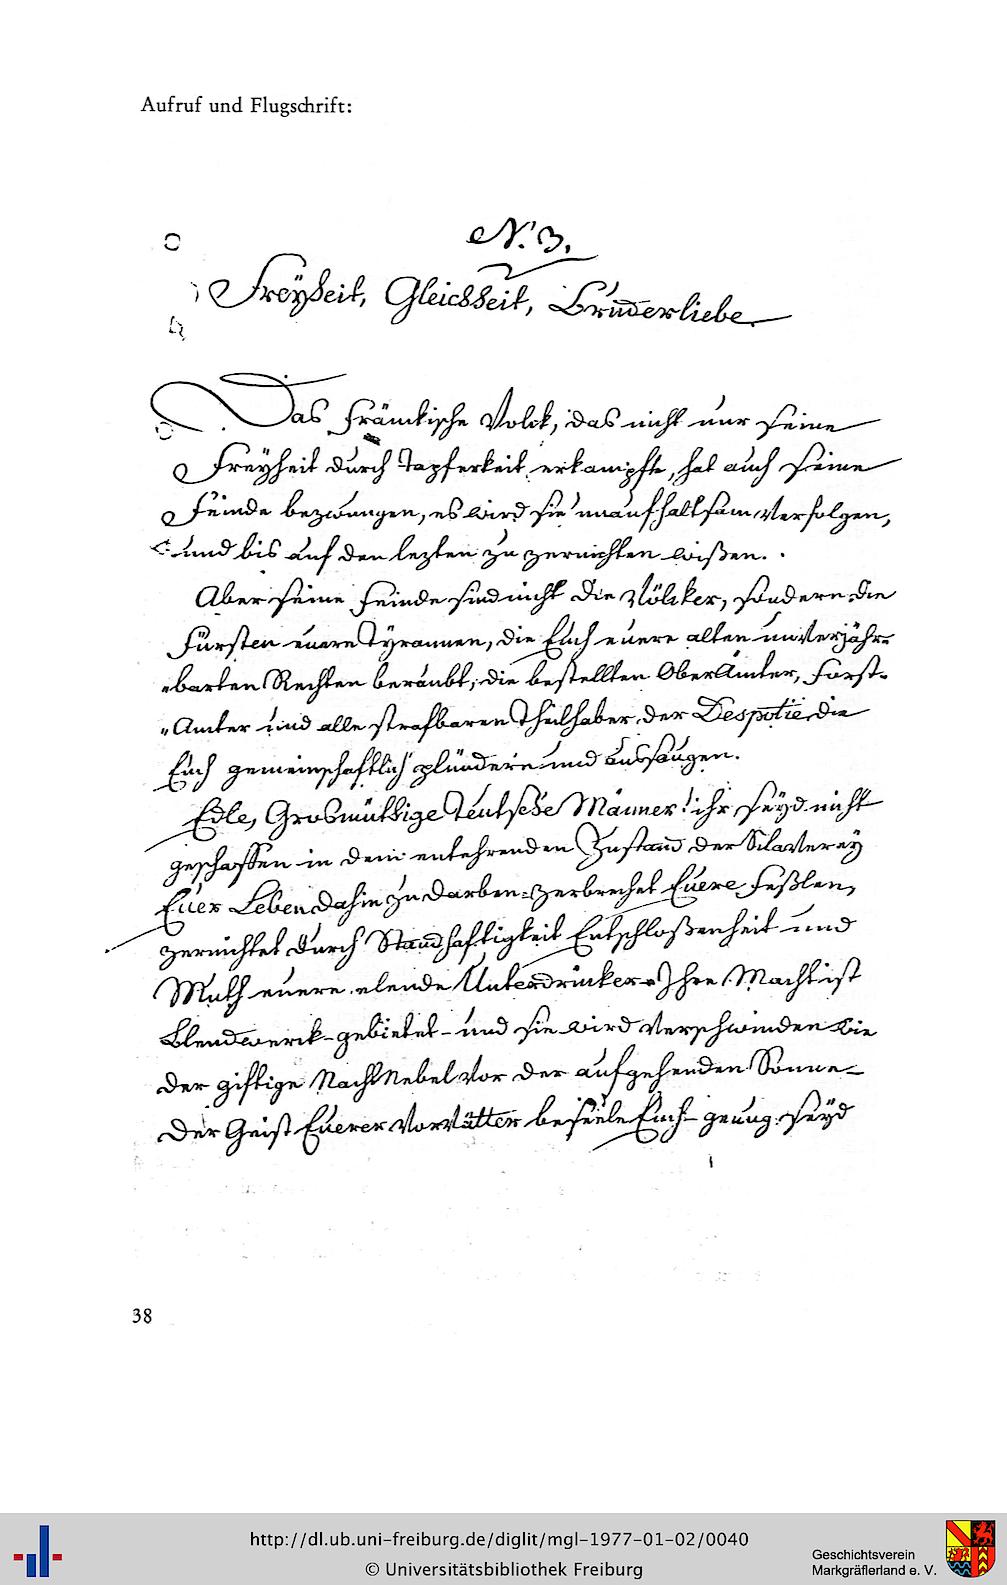 Aufruf und Flugschrift:
N. 3.
Freÿheit, Gleichheit, Bruderliebe.
Das Fränkische Volck, das nicht nur seine
Freyheit durch Tapferkeit erkampfte, hat auch seine
Feinde bezwungen, es wird sie unaufhaltsam verfolgen,
und bis auf den lezten zu zernichten wißen.
Aber seine Feinde sind nicht die Völcker, sondern die
Fürsten euere Tyrannen, die Euch euere alten unverjähr„
„baren Rechten beraubt, die bestellten OberÄmter, Forst„
„Amter und alle strafbaren Theilhaber der Despotie, die
Euch gemeinschaftlich plündern und aussaugen.
Edle, Grosmüthige teutsche Männer! ihr seÿd nicht
geschaffen in dem entehrenden Zustand der Sclaverey
Euer Leben dahin zu darben: zerbrechet Euere Feßlen,
zernichtet durch Standhaftigkeit Entschloßenheit und
Muth euere elende Unterdrücker. Ihre Macht ist
Blendwerck - gebietet - und sie wird verschwinden wie
der giftige NachtNebel vor der aufgehenden Sonne -
Der Geist Euerer Vorvätter beseele Euch - genug seÿd
38
http://dl.ub.uni-freiburg.de/diglit/mgl-1977-01-02/0040
© Universitätsbibliothek Freiburg
Geschichtsverein
Markgräflerland e. V.